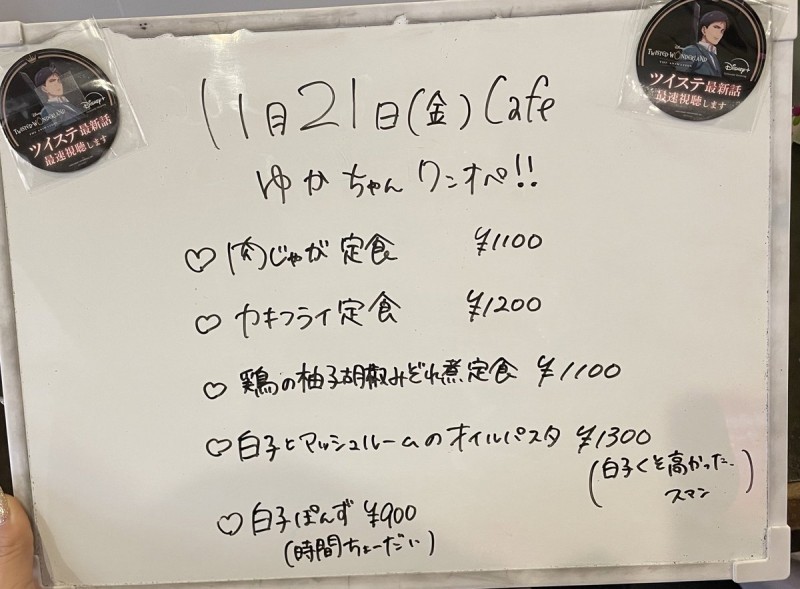 11月21日(金) Cafe
ゆかちゃん ワンオペ!!
♡ 肉じゃが定食 ¥1100
♡ カキフライ定食 ¥1200
♡ 鶏の柚子胡椒みぞれ煮定食 ¥1100
♡ 白子とマッシュルームのオイルパスタ ¥1300
(白子くそ高かった、
スマン)
♡ 白子ぽんず ¥900
(時間ちょーだい)
Disney+
TWISTED WONDERLAND
THE ANIMATION
ツイステ最新話
最速視聴します
Disney
TWISTED WONDERLAND
THE ANIMATION
Disney+
ツイステ最新話
最速視聴します